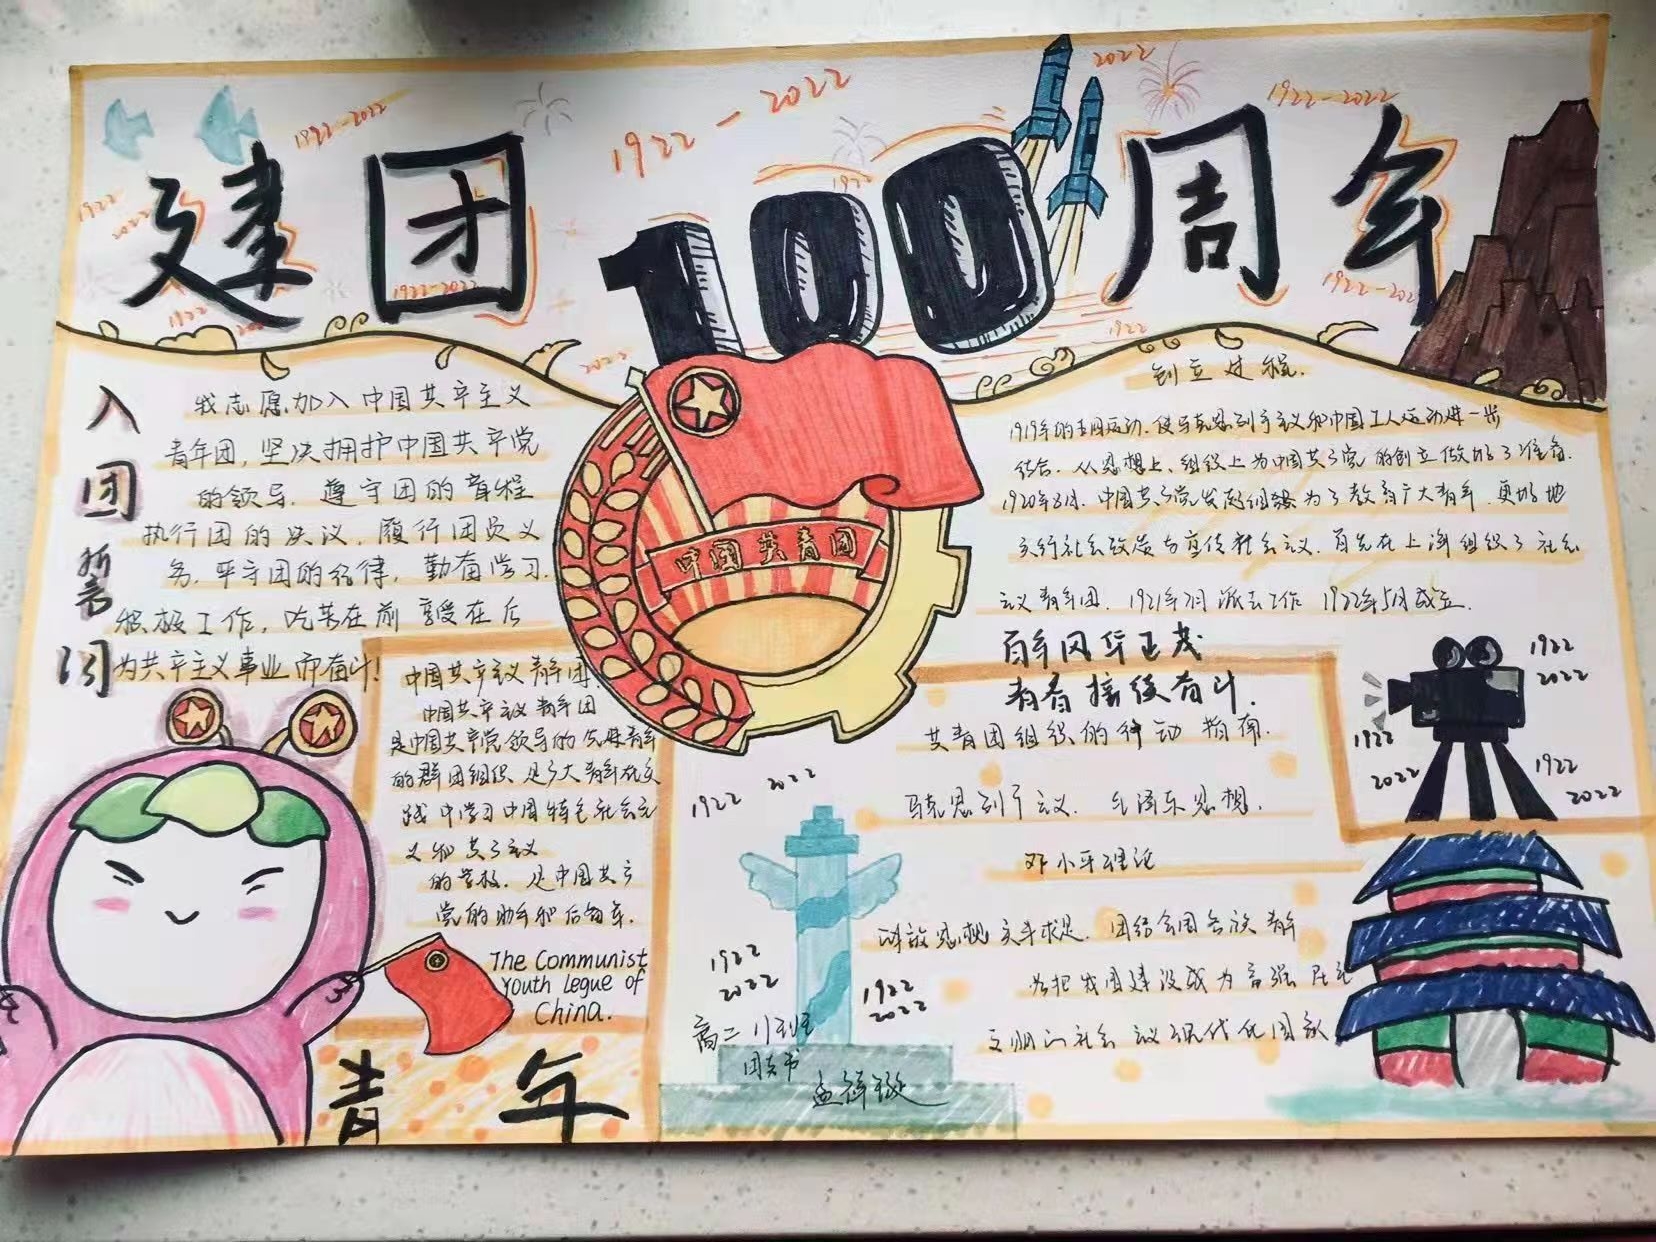 建团100周年
1922-2022
1922-2022
2022
1922-2022
1922
2022
1922-2022
1922-2022
1922
1922
1922
入团誓词
我志愿加入中国共产主义
青年团,坚决拥护中国共产党
的领导,遵守团的章程
执行团的决议,履行团员义
务,严守团的纪律,勤奋学习,
积极工作,吃苦在前 享受在后
为共产主义事业而奋斗!
中国共青团
中国共产主义青年团
中国共产主义青年团
是中国共产党领导的先进青年
的群团组织,是广大青年在实
践中学习中国特色社会主
义和共产主义
的学校,是中国共产
党的助手和后备军.
The Communist
Youth Legue of
China.
青年
创立过程.
1919年的五四运动,使马克思列宁主义和中国工人运动进一步
结合.从思想上、组织上为中国共产党的创立做好了准备.
1920年8月.中国共产党发起组织为了教育广大青年,更好地
实行社会改造与宣传社会主义,首先在上海组织了社会
主义青年团. 1921年 工作 1922年5月成立.
百年风华正茂
青春接续奋斗.
共青团组织的行动指南.
马克思列宁主义. 毛泽东思想.
邓小平理论
解放思想实事求是.团结全国各族青年
为把我国建设成为富强 民主
文明的社会主义现代化国家
1922 2022
1922
2022
1922
2022
1922
2022
1922
2022
1922
2022
高二 班
团支书